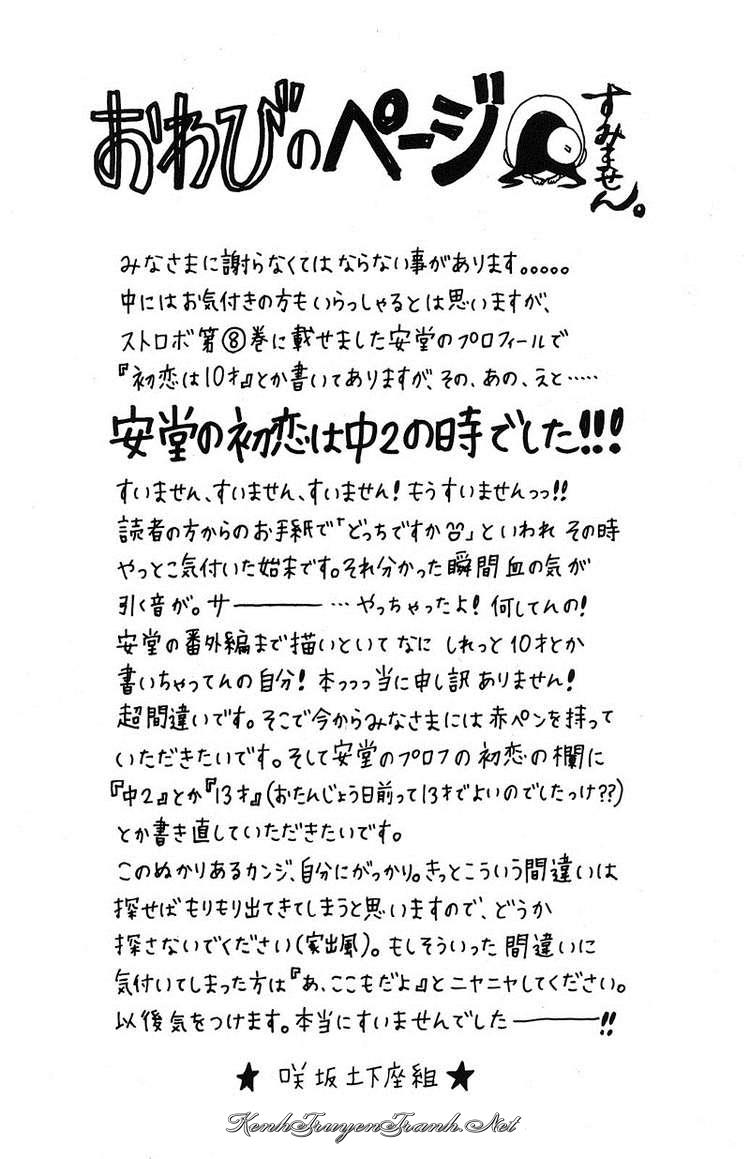 おわびのページ
すみません。
みなさまに謝らなくてはならない事があります。。。。。
中にはお気付きの方もいらっしゃるとは思いますが、
ストロボ第⑧巻に載せました安堂のプロフィールで
『初恋は10才』とか書いてありますが、その、あの、えと……
安堂の初恋は中2の時でした!!!
すいません、すいません、すいません!もうすいませんっっ!!
読者の方からのお手紙で「どっちですか」といわれ その時
やっとこ気付いた始末です。それ分かった瞬間 血の気が
引く音が。サ――――…やっちゃったよ!何してんの!
安堂の番外編まで描いといて なに しれっと 10才とか
書いちゃってんの自分!本っっっ当に申し訳ありません!
超間違いです。そこで今からみなさまには赤ペンを持って
いただきたいです。そして安堂のプロフの初恋の欄に
『中2』とか『13才』(おたんじょう日前って13才でよいのでしたっけ??)
とか書き直していただきたいです。
このぬかりあるカンジ、自分にがっかり。きっとこういう間違いは
探せばもりもり出てきてしまうと思いますので、どうか
探さないでください(家出風)。もしそういった間違いに
気付いてしまった方は『あ、ここもだよ』とニヤニヤしてください。
以後気をつけます。本当にすいませんでした――――!!
★ 咲坂土下座組 ★
KenhTruyenTranh.Net